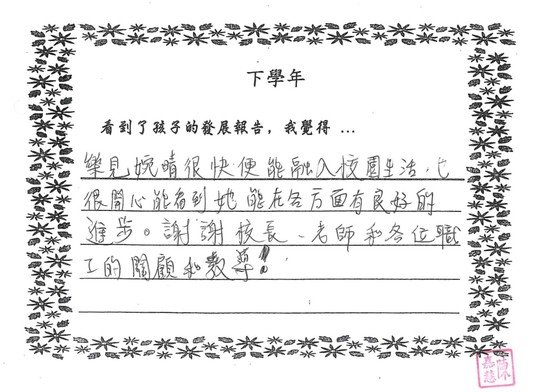 下學年
看到了孩子的發展報告，我覺得 ...
樂見婉晴很快便能融入校園生活，也
很開心能看到她能在各方面有良好的
進步。謝謝校長、老師和各位職
工的關顧和教導！